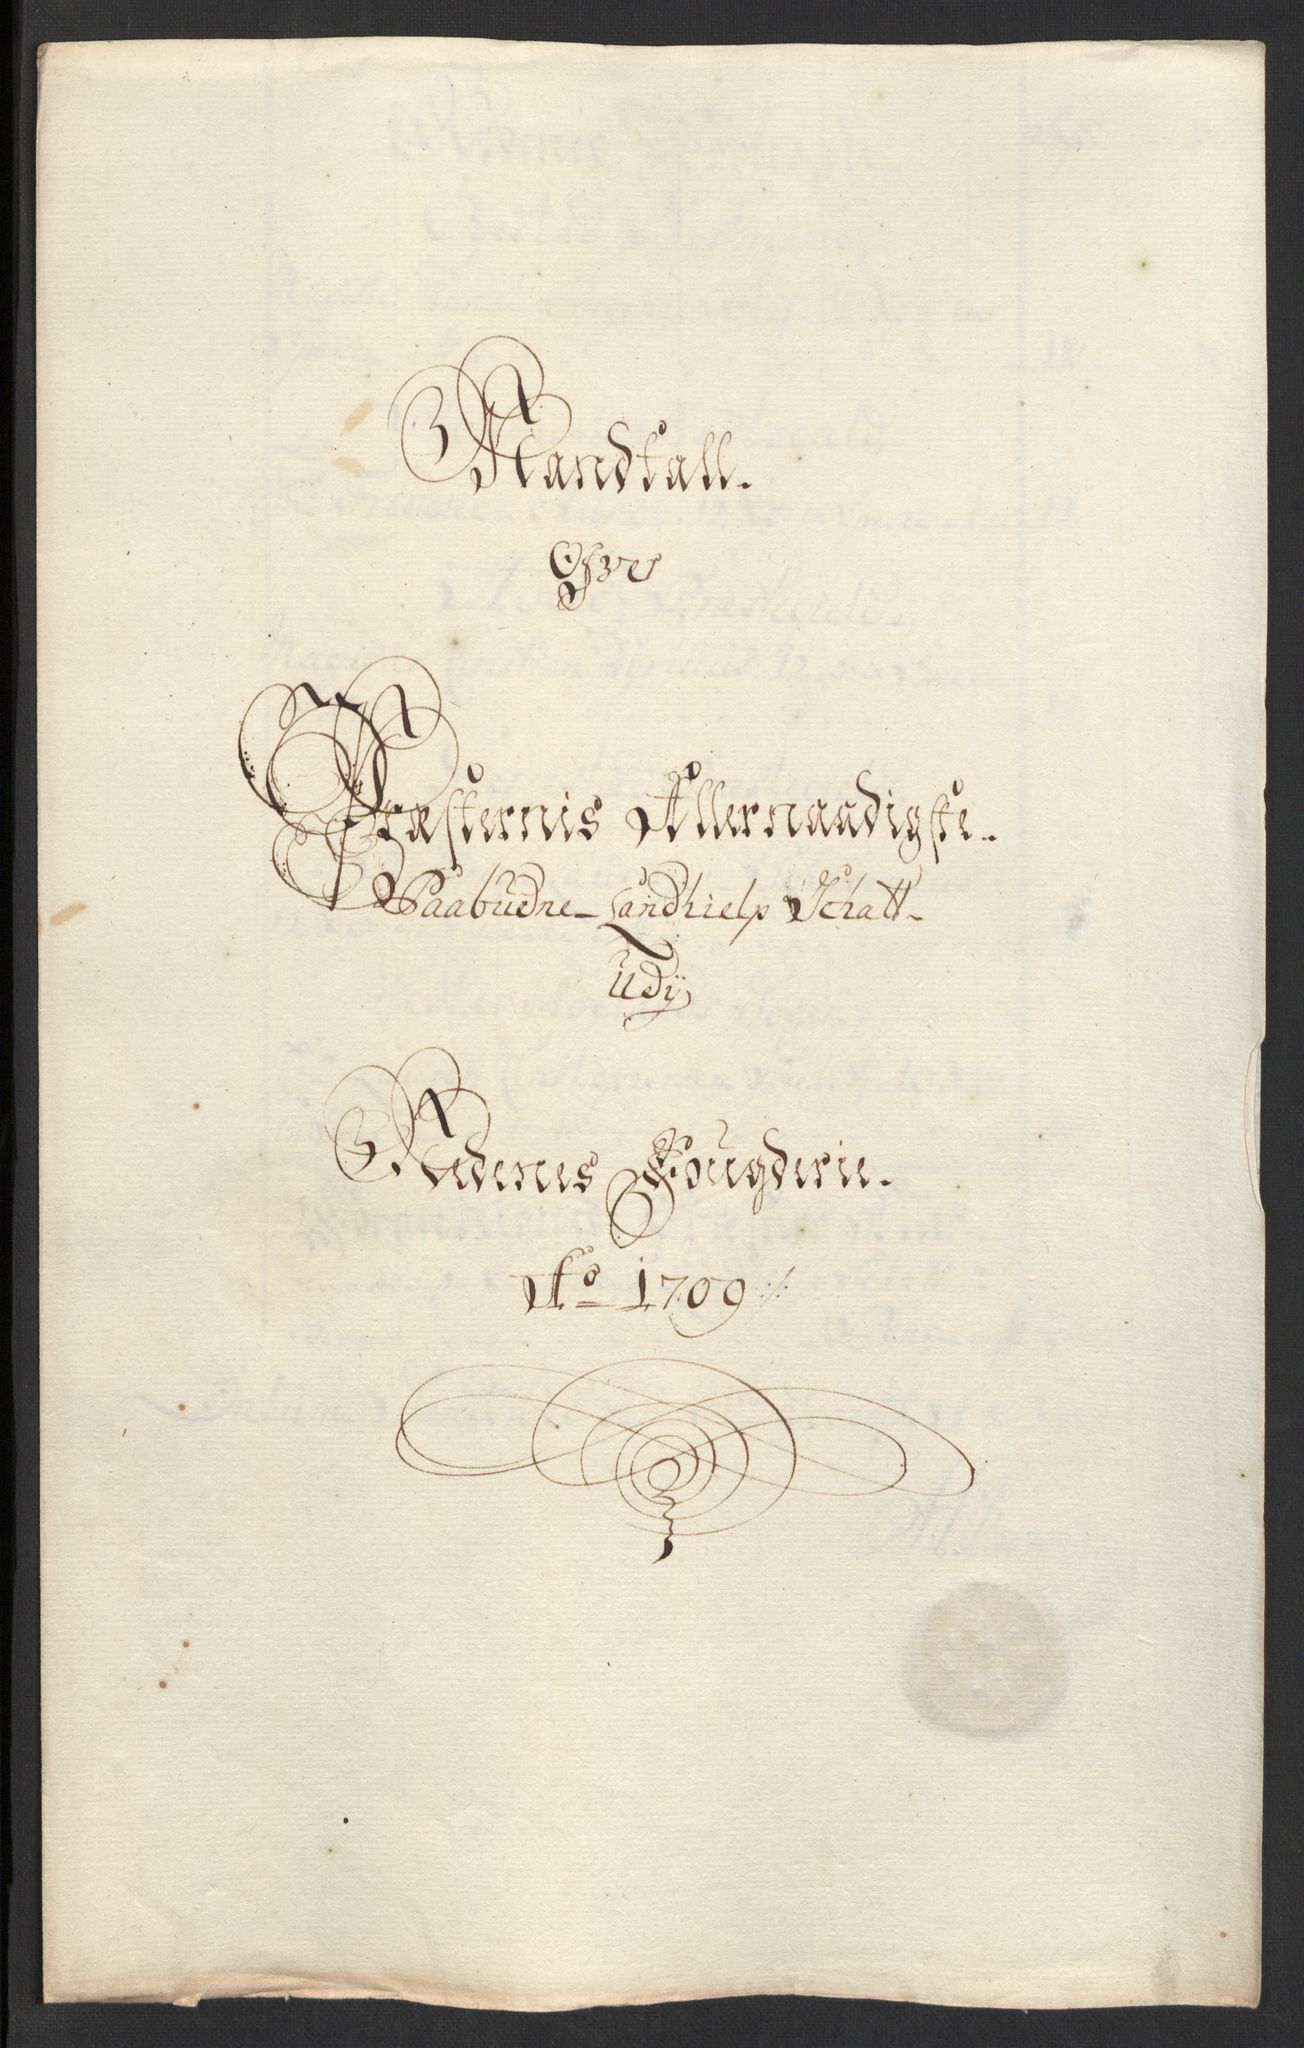 Mandtall.
Ofver
Præsternis Allernaadigste
Paabudne Landhielp Schatt
Udj
Nedenes Fougderie.
Ao 1709 ./.